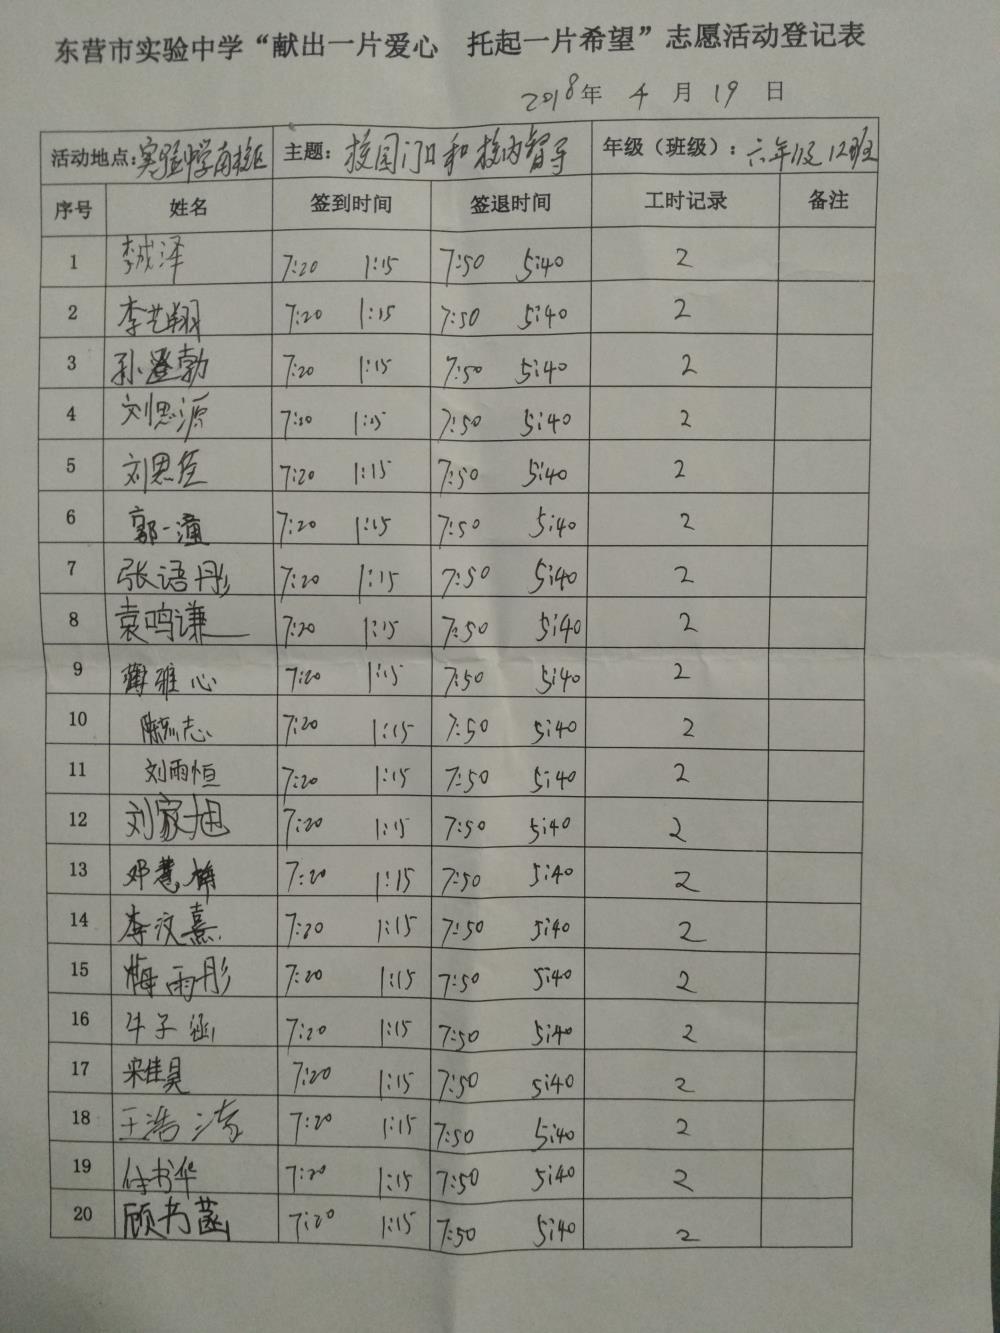 东营市实验中学“献出一片爱心 托起一片希望”志愿活动登记表
2018年 4 月 19 日
活动地点：实验中学南校区 主题：校园门口和校内督导 年级（班级）：六年级12班
序号 姓名 签到时间 签退时间 工时记录 备注
1 李成泽 7:20 1:15 7:50 5:40 2
2 李艺翔 7:20 1:15 7:50 5:40 2
3 孙登勃 7:20 1:15 7:50 5:40 2
4 刘思源 7:20 1:15 7:50 5:40 2
5 刘思臣 7:20 1:15 7:50 5:40 2
6 郭一潼 7:20 1:15 7:50 5:40 2
7 张语彤 7:20 1:15 7:50 5:40 2
8 袁鸣谦 7:20 1:15 7:50 5:40 2
9 雅心 7:20 1:15 7:50 5:40 2
10 陈志 7:20 1:15 7:50 5:40 2
11 刘雨恒 7:20 1:15 7:50 5:40 2
12 刘家旭 7:20 1:15 7:50 5:40 2
13 邓慧楠 7:20 1:15 7:50 5:40 2
14 李汶熹 7:20 1:15 7:50 5:40 2
15 梅雨彤 7:20 1:15 7:50 5:40 2
16 牛子涵 7:20 1:15 7:50 5:40 2
17 宋佳昊 7:20 1:15 7:50 5:40 2
18 王浩 7:20 1:15 7:50 5:40 2
19 任书华 7:20 1:15 7:50 5:40 2
20 顾书菡 7:20 1:15 7:50 5:40 2